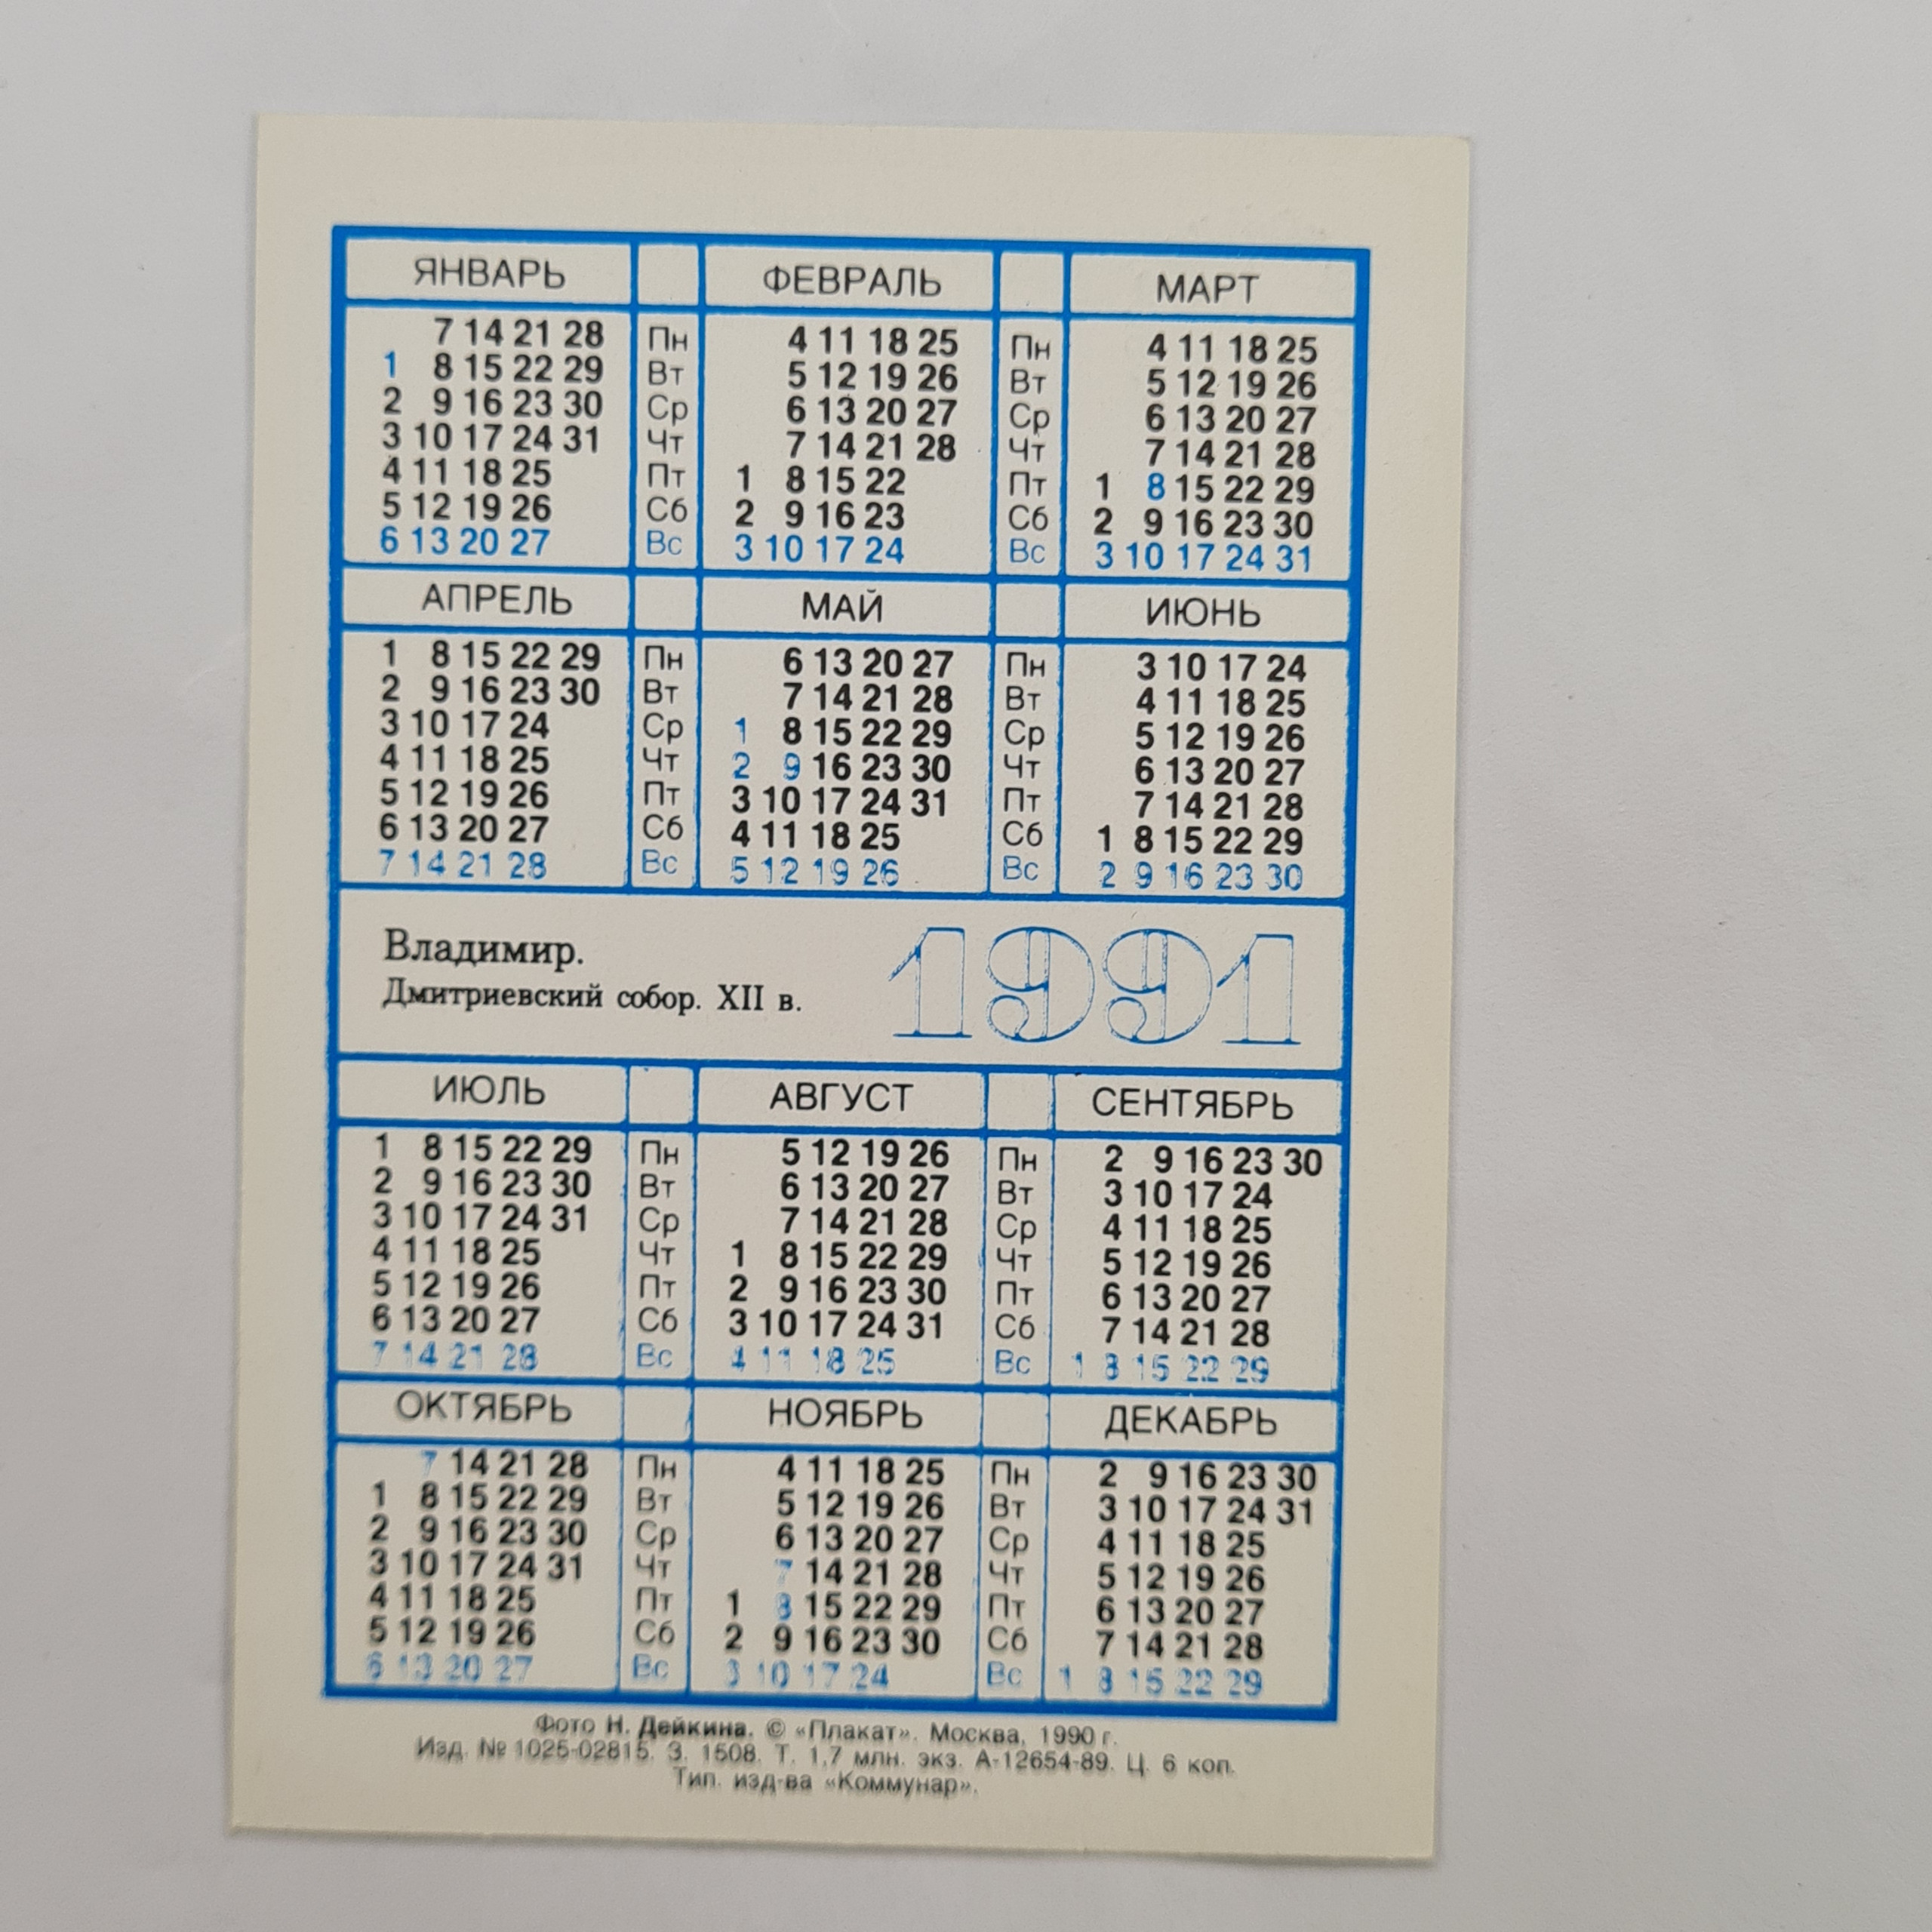 ЯНВАРЬ ФЕВРАЛЬ МАРТ
7 14 21 28 Пн 4 11 18 25 Пн 4 11 18 25
1 8 15 22 29 Вт 5 12 19 26 Вт 5 12 19 26
2 9 16 23 30 Ср 6 13 20 27 Ср 6 13 20 27
3 10 17 24 31 Чт 7 14 21 28 Чт 7 14 21 28
4 11 18 25 Пт 1 8 15 22 Пт 1 8 15 22 29
5 12 19 26 Сб 2 9 16 23 Сб 2 9 16 23 30
6 13 20 27 Вс 3 10 17 24 Вс 3 10 17 24 31
АПРЕЛЬ МАЙ ИЮНЬ
1 8 15 22 29 Пн 6 13 20 27 Пн 3 10 17 24
2 9 16 23 30 Вт 7 14 21 28 Вт 4 11 18 25
3 10 17 24 Ср 1 8 15 22 29 Ср 5 12 19 26
4 11 18 25 Чт 2 9 16 23 30 Чт 6 13 20 27
5 12 19 26 Пт 3 10 17 24 31 Пт 7 14 21 28
6 13 20 27 Сб 4 11 18 25 Сб 1 8 15 22 29
7 14 21 28 Вс 5 12 19 26 Вс 2 9 16 23 30
Владимир.
Дмитриевский собор. XII в.
1991
ИЮЛЬ АВГУСТ СЕНТЯБРЬ
1 8 15 22 29 Пн 5 12 19 26 Пн 2 9 16 23 30
2 9 16 23 30 Вт 6 13 20 27 Вт 3 10 17 24
3 10 17 24 31 Ср 7 14 21 28 Ср 4 11 18 25
4 11 18 25 Чт 1 8 15 22 29 Чт 5 12 19 26
5 12 19 26 Пт 2 9 16 23 30 Пт 6 13 20 27
6 13 20 27 Сб 3 10 17 24 31 Сб 7 14 21 28
7 14 21 28 Вс 4 11 18 25 Вс 1 8 15 22 29
ОКТЯБРЬ НОЯБРЬ ДЕКАБРЬ
7 14 21 28 Пн 4 11 18 25 Пн 2 9 16 23 30
1 8 15 22 29 Вт 5 12 19 26 Вт 3 10 17 24 31
2 9 16 23 30 Ср 6 13 20 27 Ср 4 11 18 25
3 10 17 24 31 Чт 7 14 21 28 Чт 5 12 19 26
4 11 18 25 Пт 1 8 15 22 29 Пт 6 13 20 27
5 12 19 26 Сб 2 9 16 23 30 Сб 7 14 21 28
6 13 20 27 Вс 3 10 17 24 Вс 1 8 15 22 29
Фото Н. Дейкина. © «Плакат». Москва, 1990 г.
Изд. № 1025-02815. З. 1508. Т. 1,7 млн. экз. А-12654-89. Ц. 6 коп.
Тип. изд-ва «Коммунар».